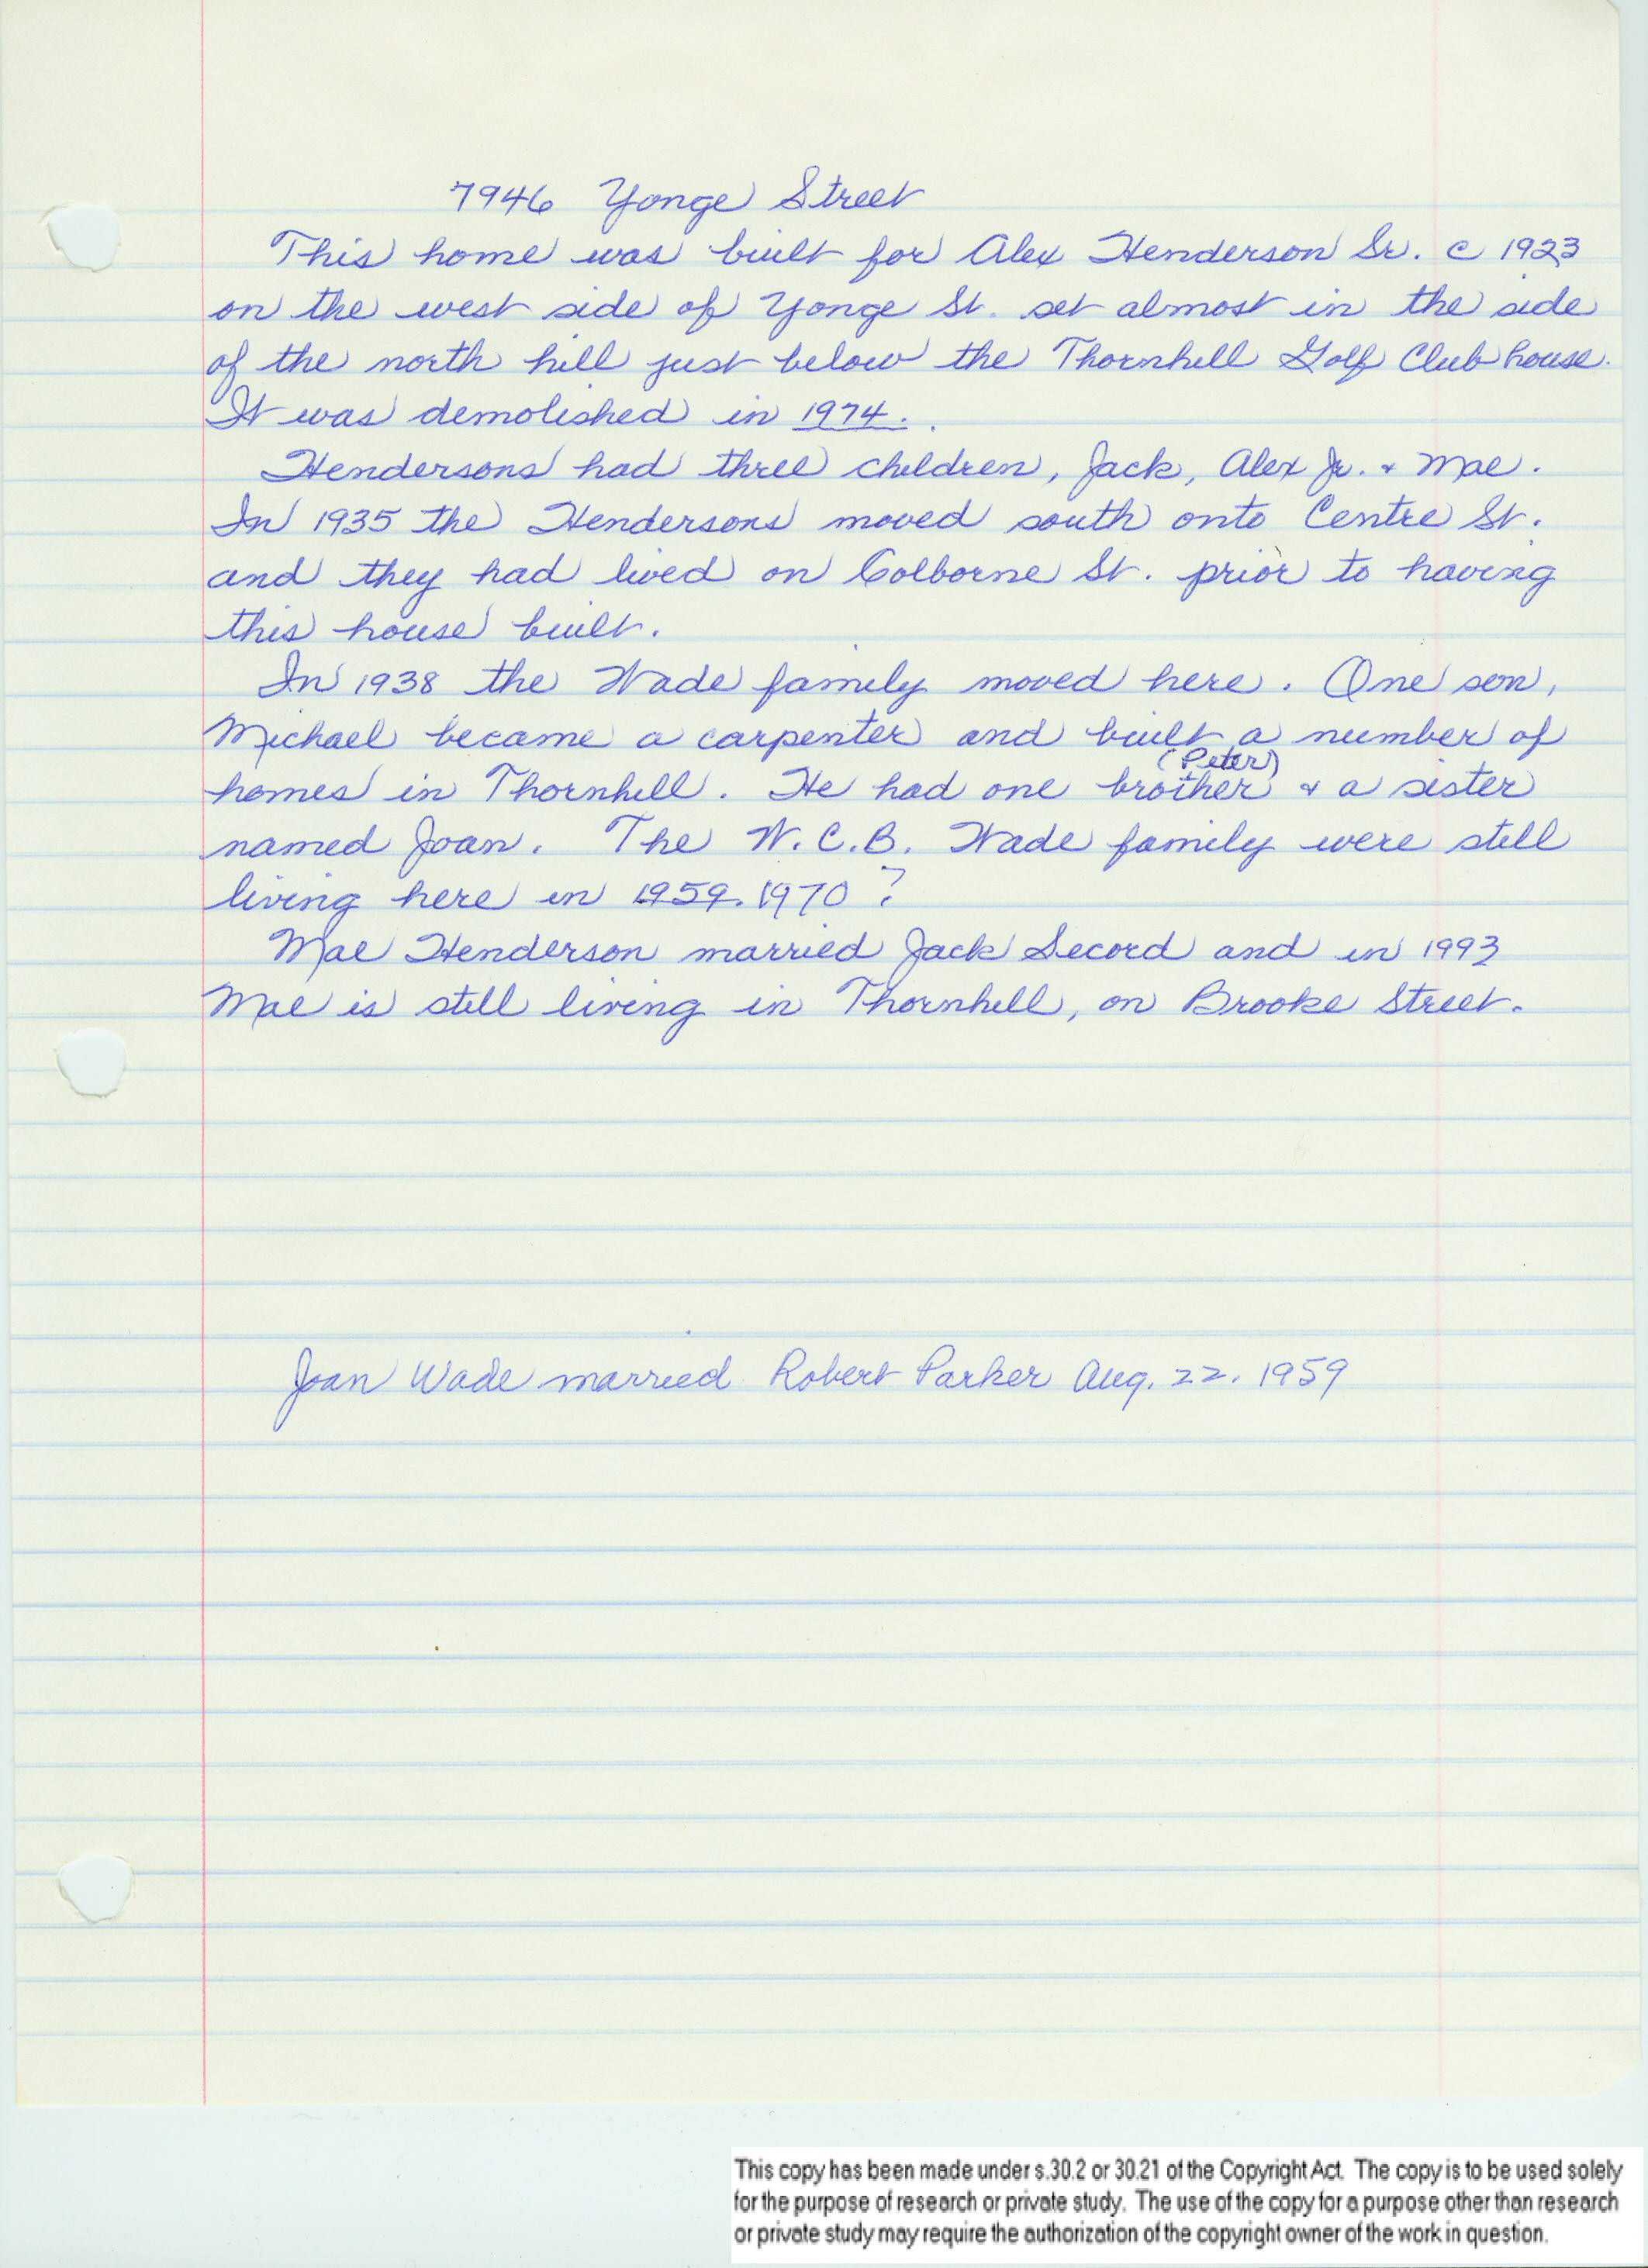 7946 Yonge Street
This home was built for Alex Henderson Sr. c 1923
on the west side of Yonge St. set almost in the side
of the north hill just below the Thornhill Golf Club house.
It was demolished in 1974.
Hendersons had three children, Jack, Alex Jr. & Mae.
In 1935 the Hendersons moved south onto Centre St.
and they had lived on Colborne St. prior to having
this house built.
In 1938 the Wade family moved here. One son,
Michael became a carpenter and built a number of
(Peter)
homes in Thornhill. He had one brother & a sister
named Joan. The W.C.B. Wade family were still
living here in 1959. 1970 ?
Mae Henderson married Jack Secord and in 1993
Mae is still living in Thornhill, on Brooke Street.
Joan Wade married Robert Parker Aug. 22. 1959
This copy has been made under s.30.2 or 30.21 of the Copyright Act. The copy is to be used solely
for the purpose of research or private study. The use of the copy for a purpose other than research
or private study may require the authorization of the copyright owner of the work in question.